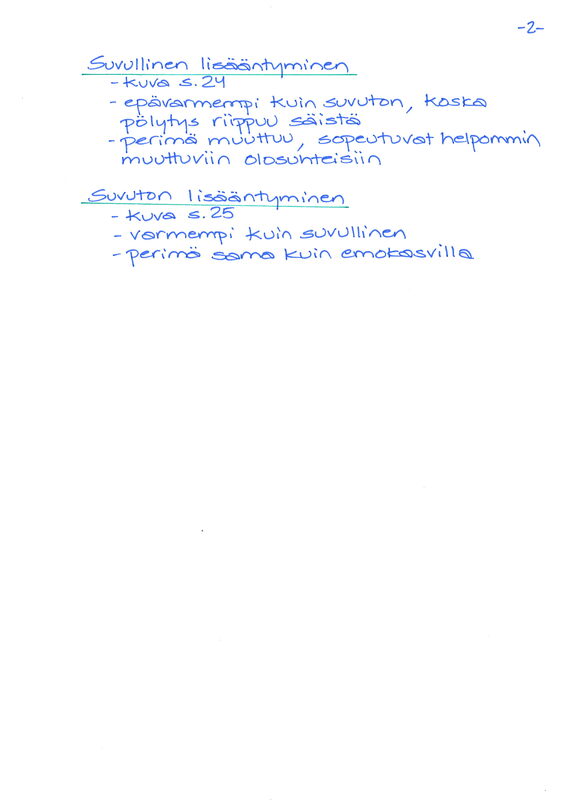 -2-
Suvullinen lisääntyminen
- kuva s.24
- epävarmempi kuin suvuton, koska
pölytys riippuu säistä
- perimä muuttuu, sopeutuvat helpommin
muuttuviin olosuhteisiin
Suvuton lisääntyminen
- kuva s.25
- varmempi kuin suvullinen
- perimä sama kuin emokasvilla